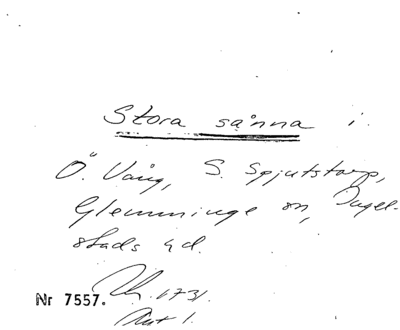 Stora sånna i
Ö. Vång, S. Spjutstorp,
Glemminge sn, Ingel-
stads hd.
1731.
Nr 7557.
Akt 1.